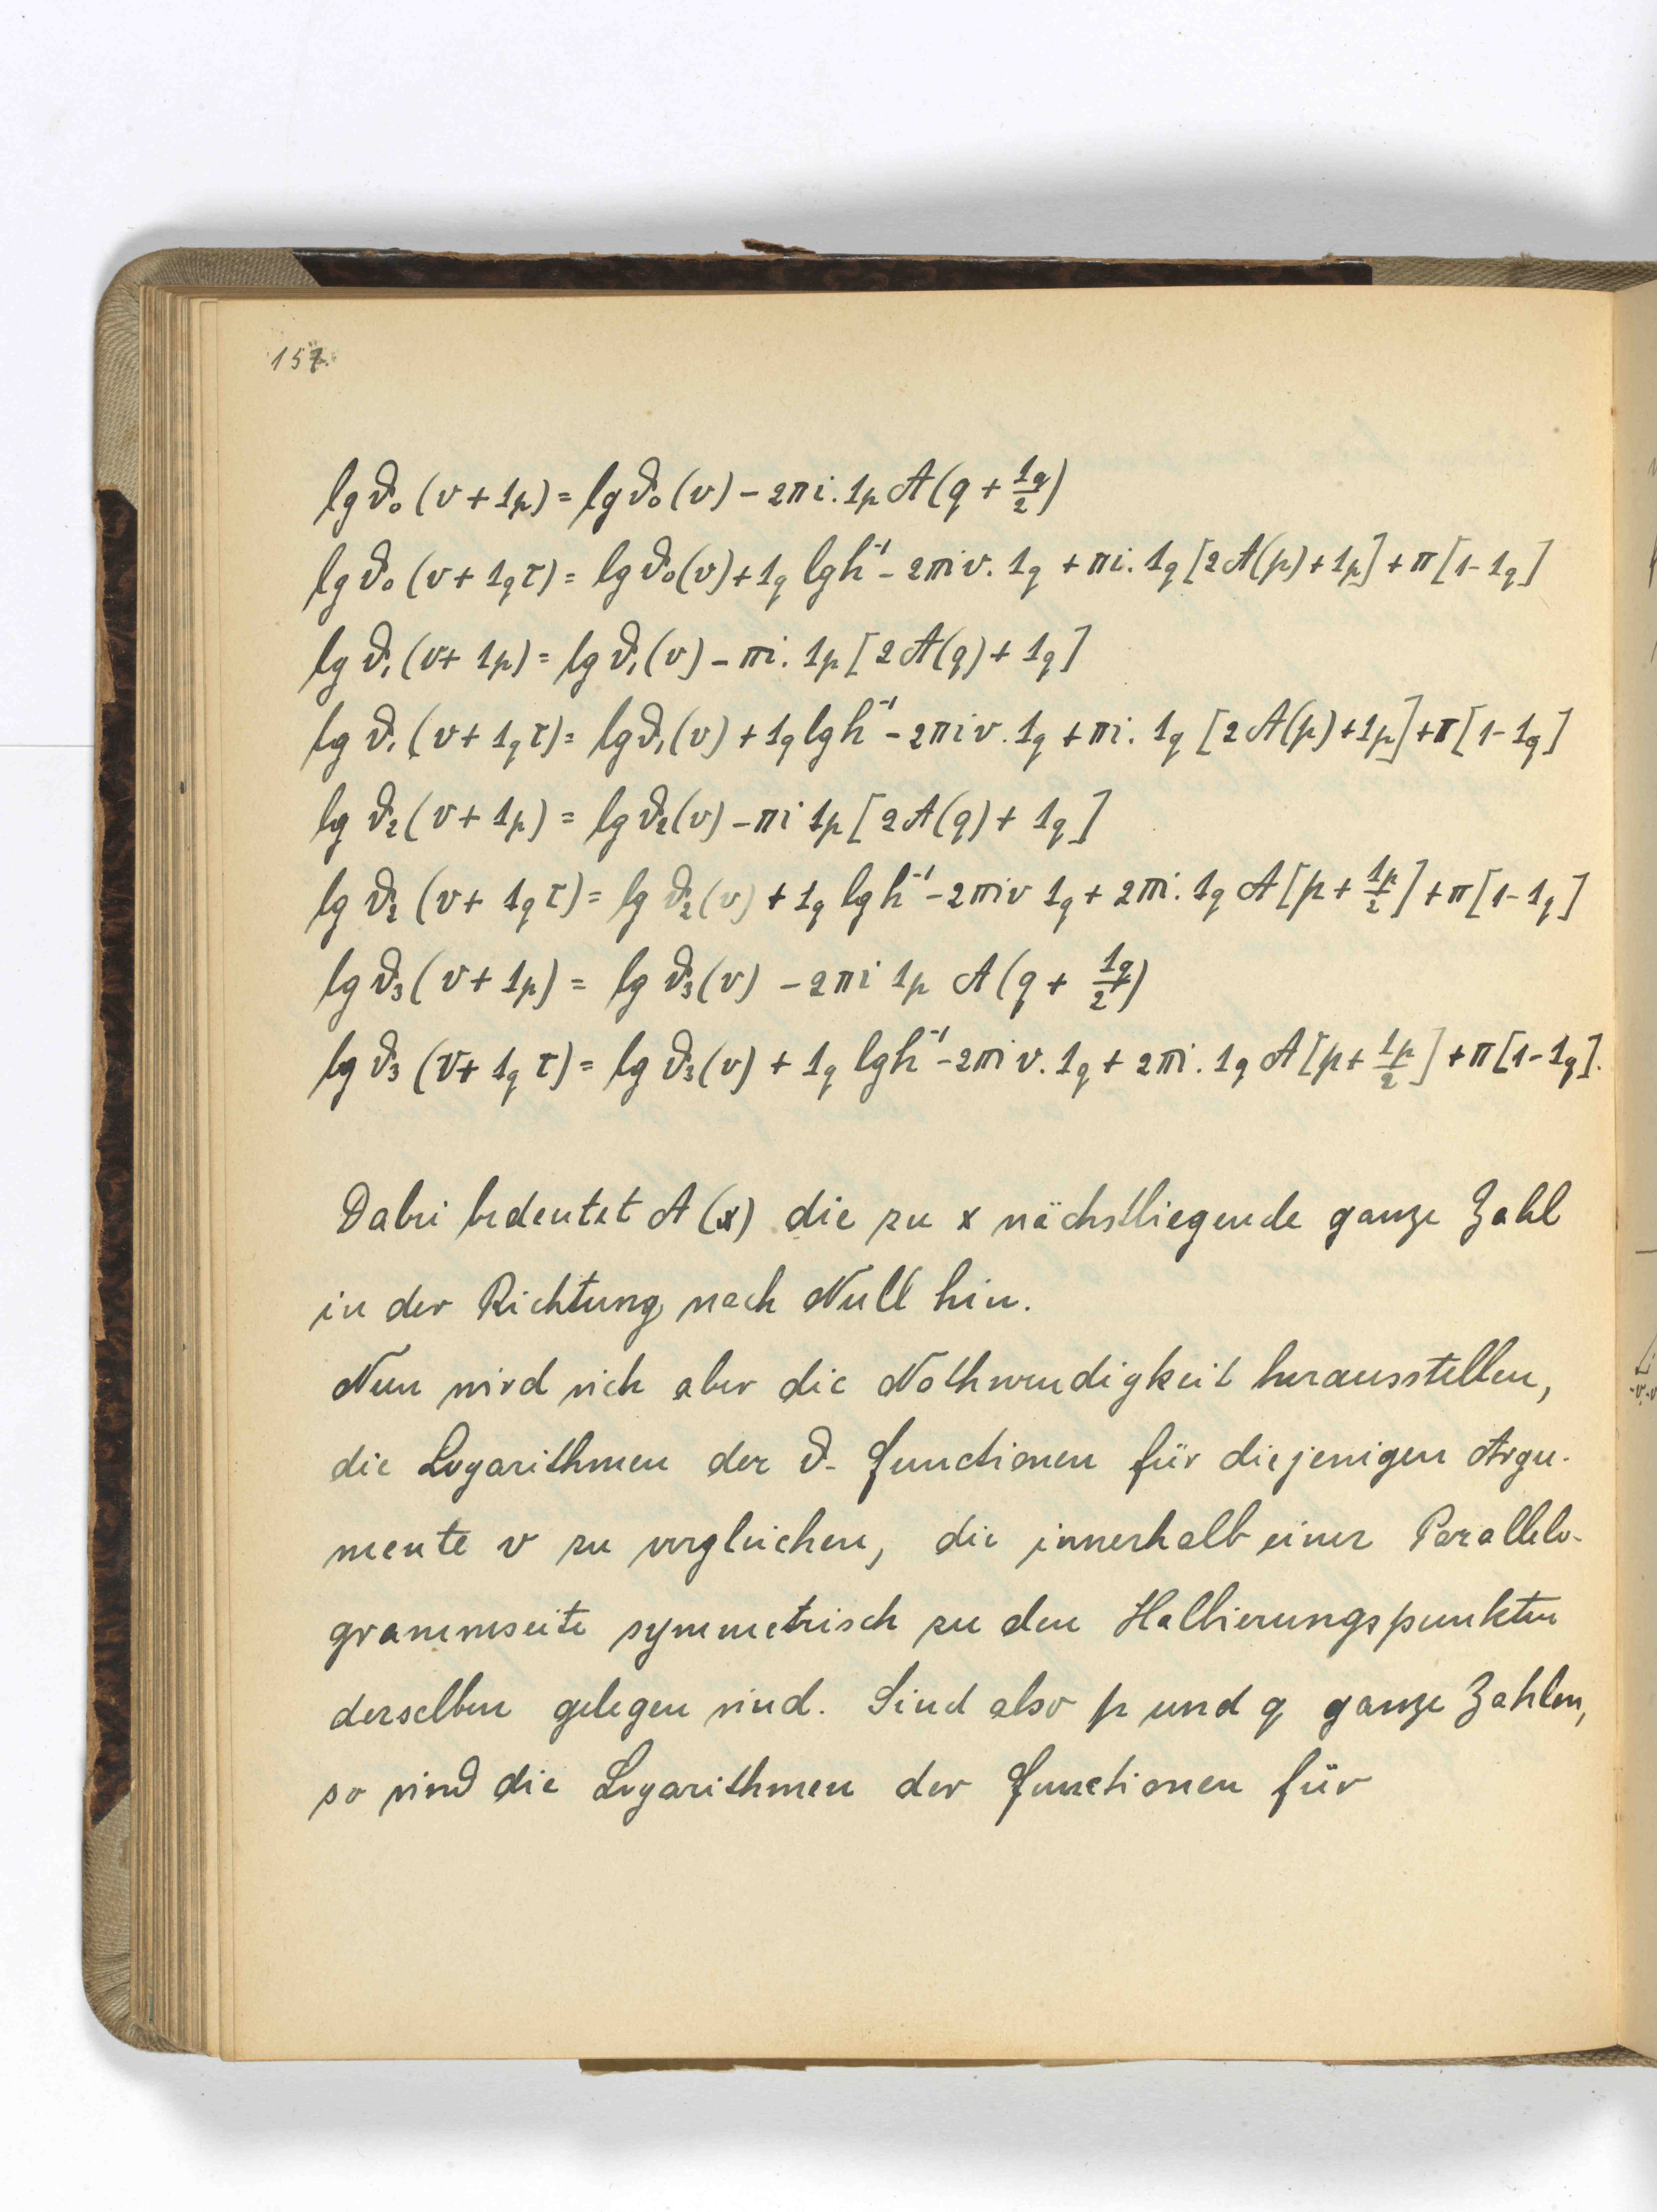 157.
lg ϑ₀ (v + 1ₚ) = lg ϑ₀ (v) – 2πi . 1ₚ A (q + 1_q/2)
lg ϑ₀ (v + 1_q τ) = lg ϑ₀ (v) + 1_q lg h⁻¹ – 2πiv . 1_q + πi . 1_q [2A(p) + 1ₚ] + π [1 – 1_q]
lg ϑ₁ (v + 1ₚ) = lg ϑ₁ (v) – πi . 1ₚ [2A(q) + 1_q]
lg ϑ₁ (v + 1_q τ) = lg ϑ₁ (v) + 1_q lg h⁻¹ – 2πiv . 1_q + πi . 1_q [2A(p) + 1ₚ] + π [1 – 1_q]
lg ϑ₂ (v + 1ₚ) = lg ϑ₂ (v) – πi 1ₚ [2A(q) + 1_q]
lg ϑ₂ (v + 1_q τ) = lg ϑ₂ (v) + 1_q lg h⁻¹ – 2πiv 1_q + 2πi . 1_q A [p + 1ₚ/2] + π [1 – 1_q]
lg ϑ₃ (v + 1ₚ) = lg ϑ₃ (v) – 2πi 1ₚ A (q + 1_q/2)
lg ϑ₃ (v + 1_q τ) = lg ϑ₃ (v) + 1_q lg h⁻¹ – 2πi v . 1_q + 2πi . 1_q A [p + 1ₚ/2] + π [1 – 1_q].
Dabei bedeutet A (x) die zu x nächstliegende ganze Zahl
in der Richtung nach Null hin.
Nun wird sich aber die Nothwendigkeit herausstellen,
die Logarithmen der ϑ- Functionen für diejenigen Argu-
mente v zu vergleichen, die innerhalb einer Parallelo-
grammseite symmetrisch zu den Halbierungspunkten
derselben gelegen sind. Sind also p und q ganze Zahlen,
so sind die Logarithmen der Functionen für